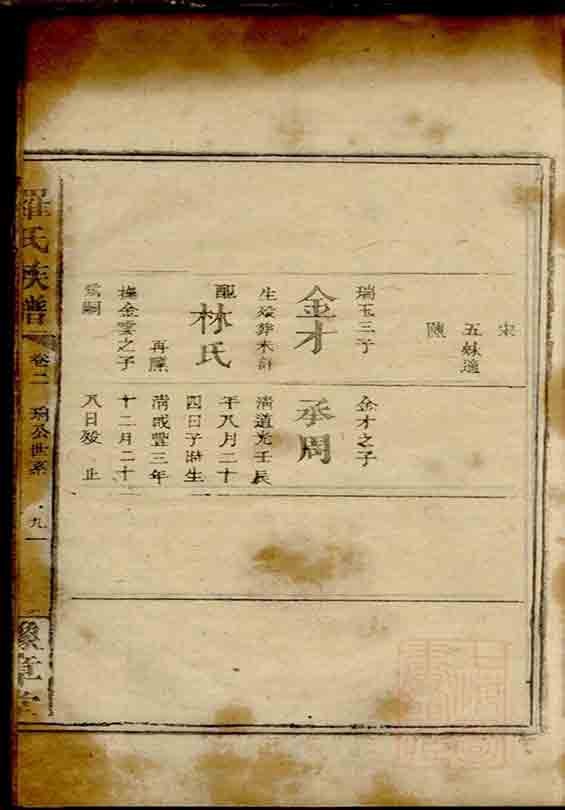 宋
五妹適
陳
瑞玉三子
金才
生歿葬未詳
配林氏
再醮
撫金雲之子
為嗣
金才之子
承周
清道光壬辰
年八月二十
四日子時生
清咸豐三年
十二月二十
八日歿 止
羅氏族譜
卷二
瑜公世系
九一
豫章堂